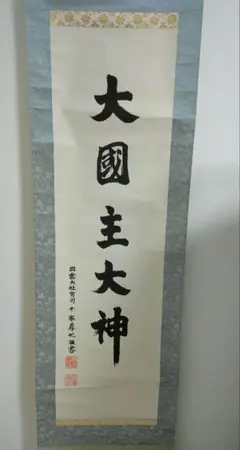 大國主大神
出雲大社宮司 千家尊祀謹書